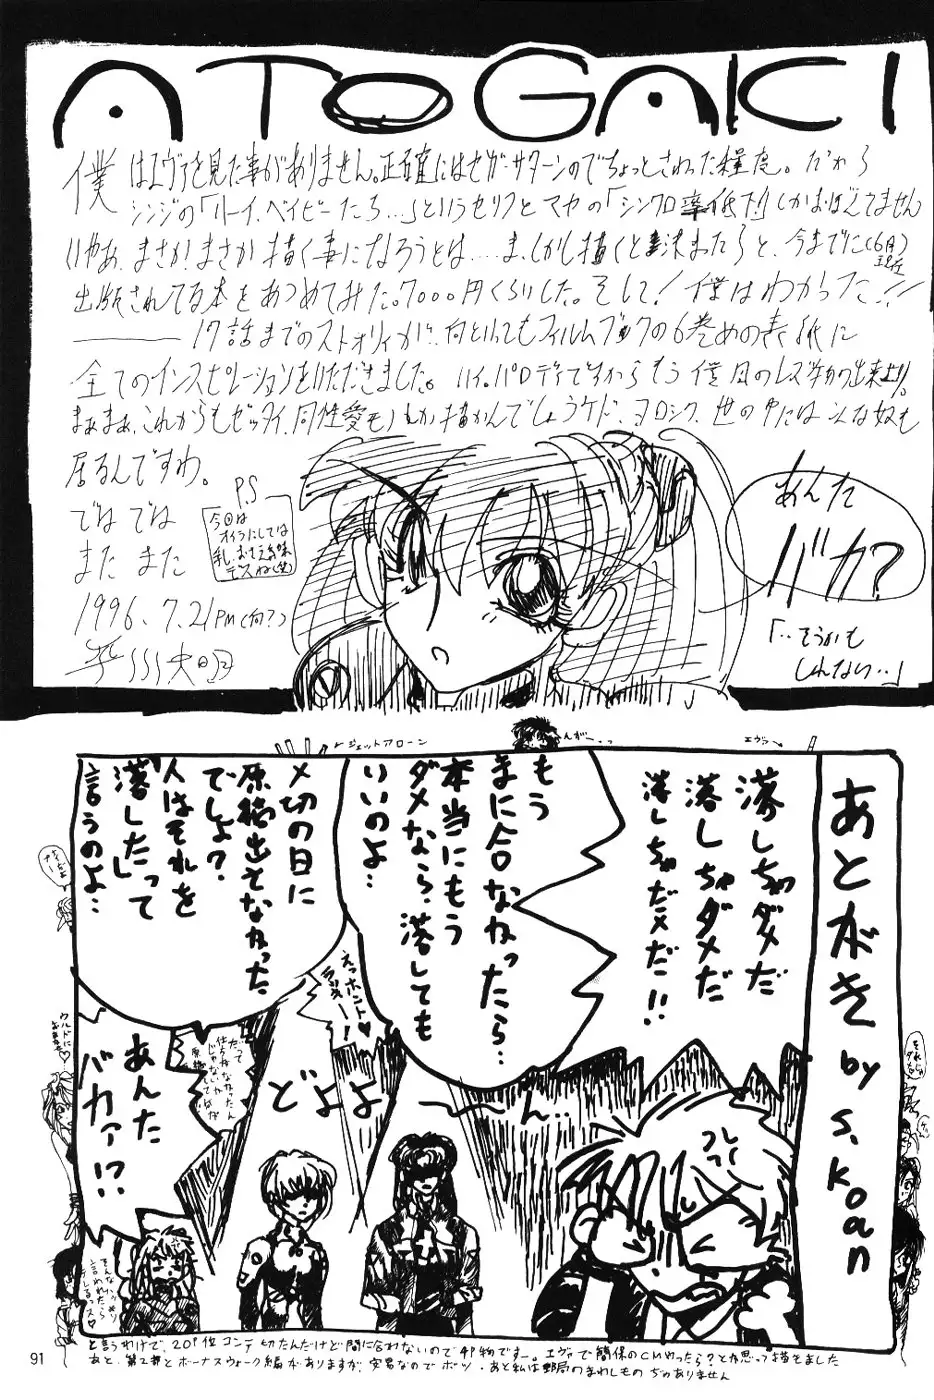 ATOGAKI
僕はエヴァを見た事がありません。正確にはセガ・サターンのでちょっとさわった程度。だから
シンジの「ハーイ、ベイビーたち…」というセリフとマヤの「シンクロ率低下!」しかおぼえてません
いやあ、まさか!まさか描く事になろうとは……ま、しかし描くと決まったらと、今までに(6月現在)
出版されてる本をあつめてみた。7000円くらいした。そして!僕はわかった!!
――17話までのストォリィがだ、何といってもフィルムブックの6巻めの表紙に
全てのインスピレーションをいただきました。ハイ。パロディですからもう僕風のレズ物の出来上り。
まぁまぁ、これからもゼッタイ、同性愛モノしか描かんでしょうケド、ヨロシク、世の中にはこんな奴も
居るんですわ。
ではでは
また また
P.S
今回は
オイラにしては
乳
デスね(笑)
1996.7.21 PM(何?)
あんた
バカ?
「‥そうかも
しれない‥」
ジェットアローン
エヴァ
あとがき by S.Koan
落しちゃダメだ
落しちゃダメだ
落しちゃだメだ!!
もう
まに合わなかったら…
本当にもう
ダメなら落しても
いいのよ…
〆切の日に
原稿出そなかった
でしょ?
人はそれを
「落した」って
言うのよ…
えっホント♥
ラッキー!
どよよ
ーん‥
だって
仕方なかったん
じゃないか
あんた
バカァ!?
と言うわけで、20P位コンテ切たんだけど間に合わないので4P物ですー。エヴァで簡保のCMやったら?とか思って描きました
あと、第2部とボーナスウォーク編がありますが、安易なのでボツ・あと私は郵局のまわしものぢゃありません
91